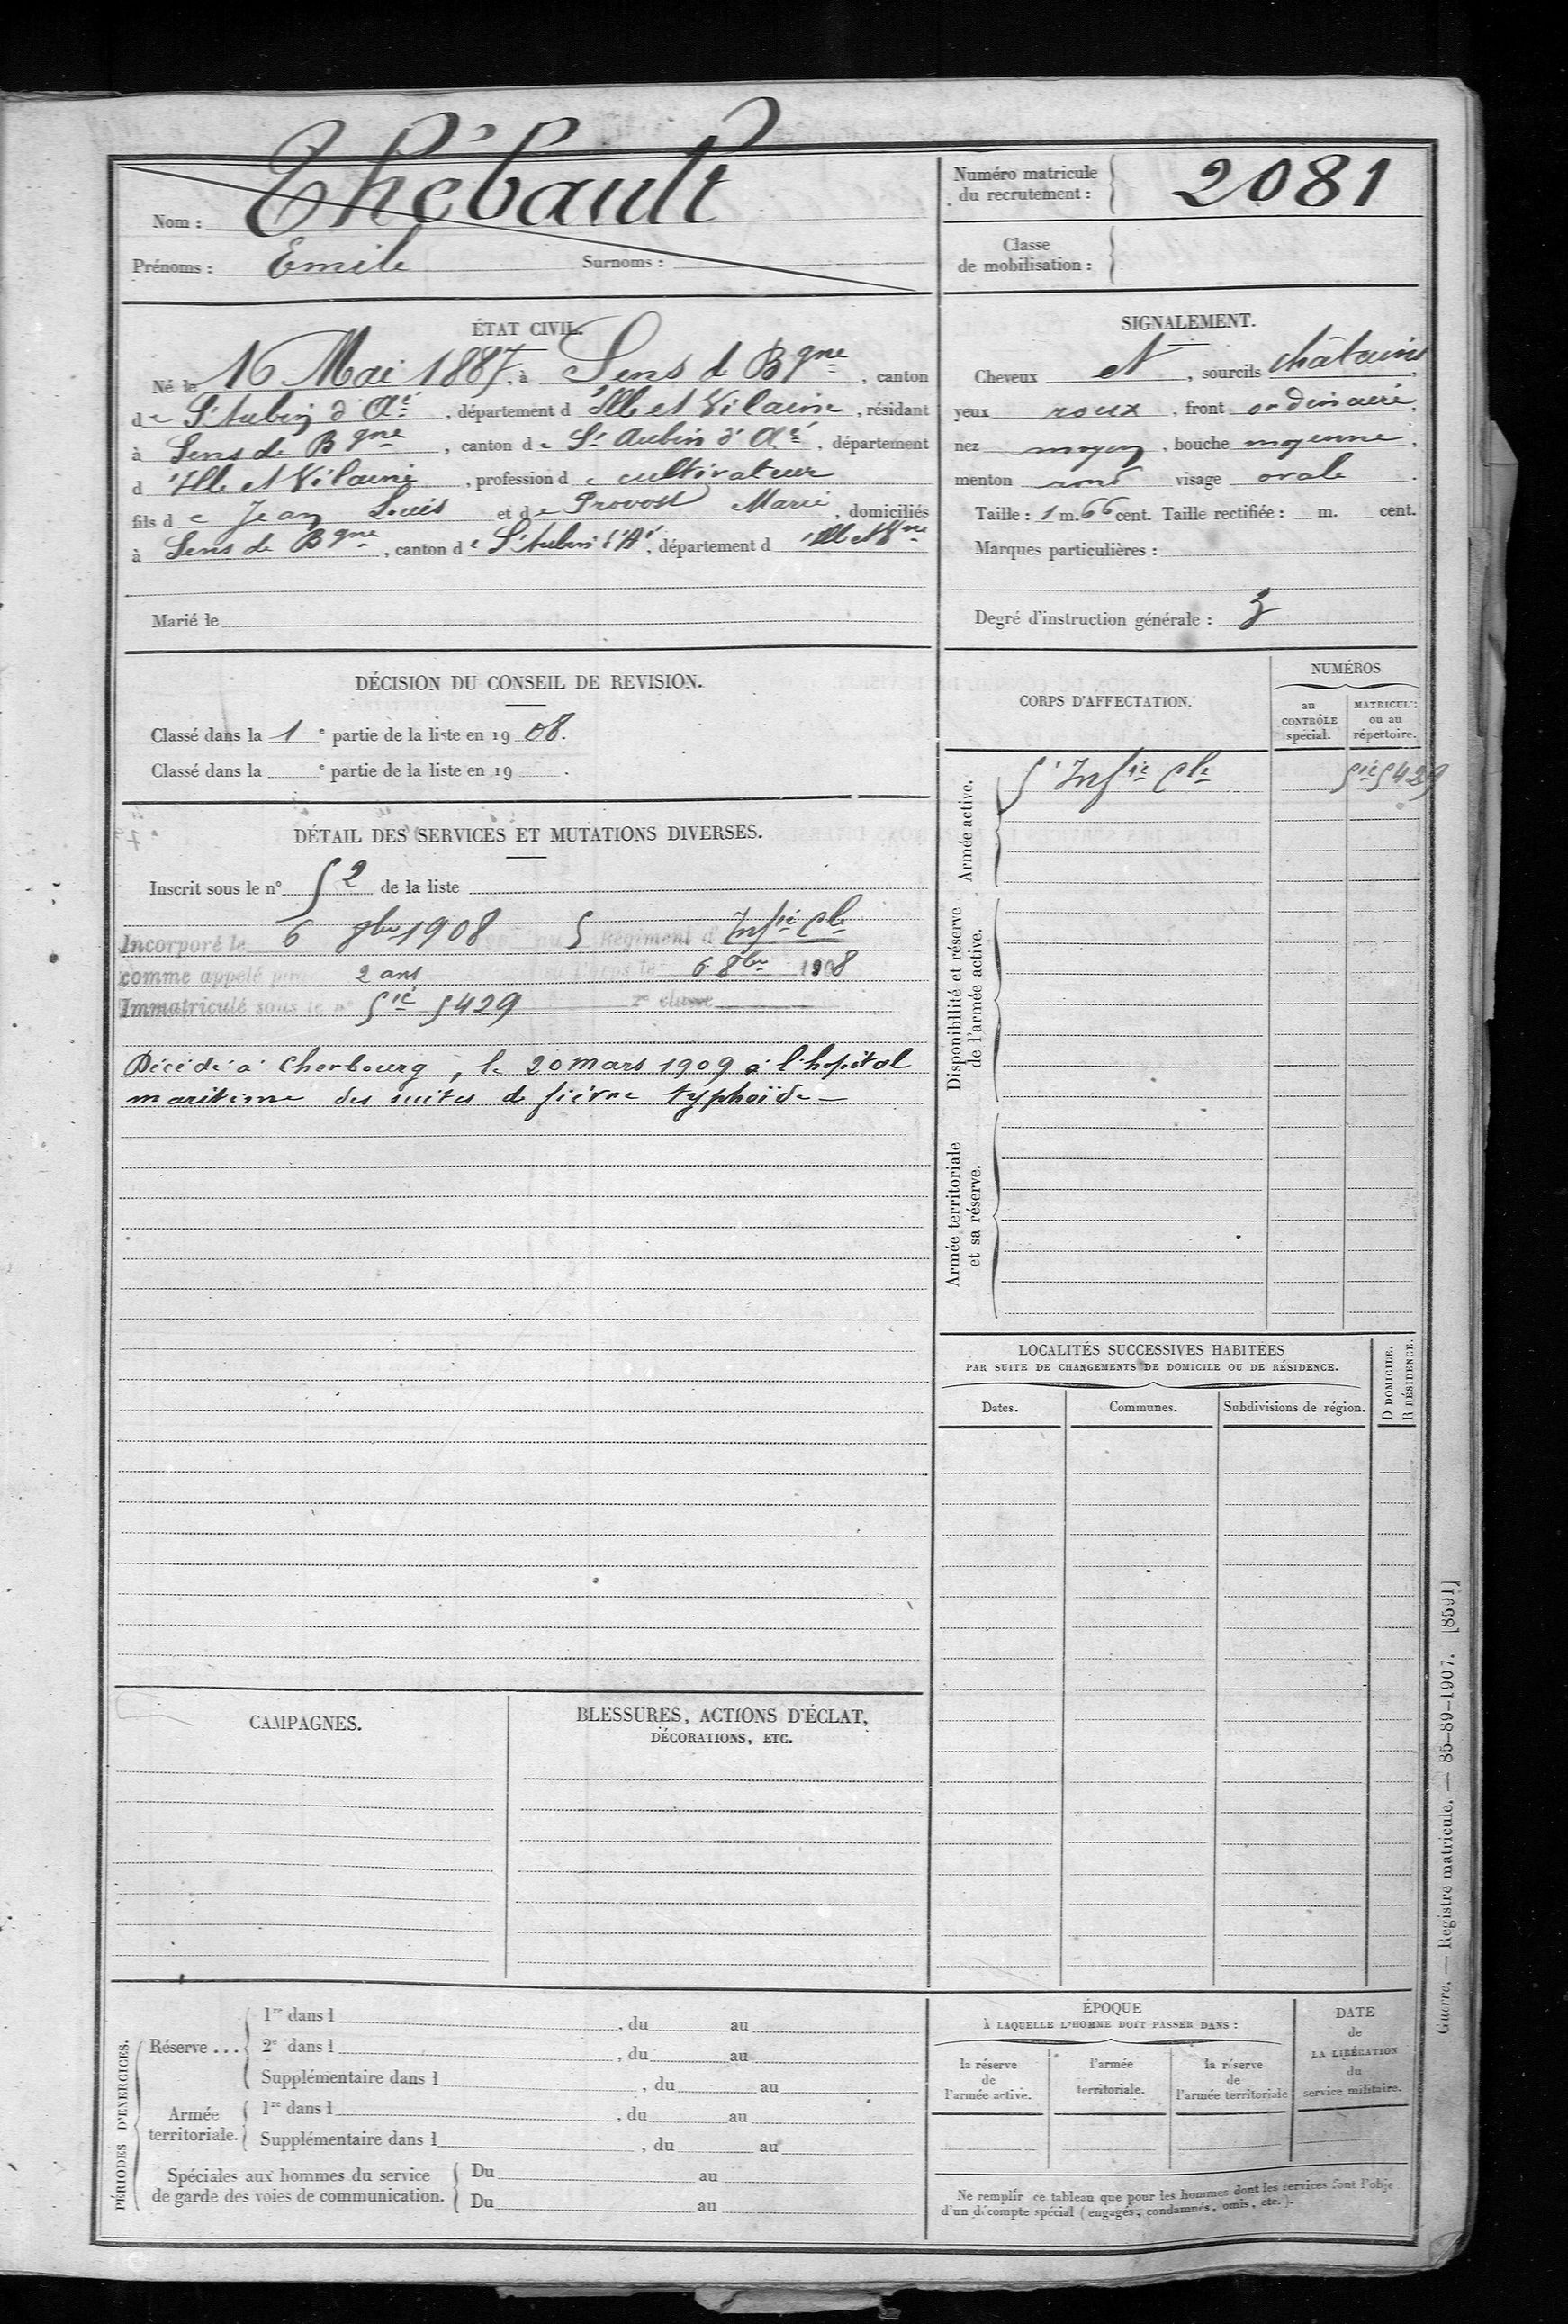 Thébault
Nom :
Prénoms : Emile Surnoms :
Numéro matricule
du recrutement : 2081
Classe
de mobilisation :
ÉTAT CIVIL.
Né le 16 Mai 1887, à Sens de Bgne, canton
de St Aubin d'Aé, département d'Ille et Vilaine, résidant
à Sens de Bgne, canton de St Aubin d'Aé, département
d'Ille et Vilaine, profession de cultivateur
fils de Jean Louis et de Provost Marie, domiciliés
à Sens de Bgne, canton de St Aubin d'Aé, département d'Ille et Vne
Marié le
SIGNALEMENT.
Cheveux et, sourcils châtains,
yeux roux, front ordinaire,
nez moyen, bouche moyenne,
menton rond visage ovale.
Taille : 1 m. 66 cent. Taille rectifiée : m. cent.
Marques particulières :
Degré d'instruction générale : 3
DÉCISION DU CONSEIL DE REVISION.
Classé dans la 1e partie de la liste en 1908.
Classé dans la e partie de la liste en 19 .
DÉTAIL DES SERVICES ET MUTATIONS DIVERSES.
Inscrit sous le n° 52 de la liste
Incorporé le 6 8bre 1908 5 Régiment d'Infie Cle
comme appelé pour 2 ans Corps le 6 8bre 1908
Immatriculé sous le n° 5429 2e classe
Décédé à Cherbourg, le 20 mars 1909 à l'hopital
maritime des suites de fièvre typhoïde
CORPS D'AFFECTATION.
NUMÉROS
au
CONTRÔLE
spécial.
MATRICULE
ou au
répertoire.
Armée active.
5e Infie Cle 5429
Disponibilité et réserve
de l'armée active.
Armée territoriale
et sa réserve.
LOCALITÉS SUCCESSIVES HABITÉES
PAR SUITE DE CHANGEMENTS DE DOMICILE OU DE RÉSIDENCE.
Dates. Communes. Subdivisions de région.
D DOMICILE.
R RÉSIDENCE.
CAMPAGNES.
BLESSURES, ACTIONS D'ÉCLAT,
DÉCORATIONS, ETC.
PÉRIODES D'EXERCICES.
Réserve ...
1re dans l , du au
2e dans l , du au
Supplémentaire dans l , du au
Armée
territoriale.
1re dans l , du au
Supplémentaire dans l , du au
Spéciales aux hommes du service
de garde des voies de communication.
Du au
Du au
ÉPOQUE
À LAQUELLE L'HOMME DOIT PASSER DANS :
la réserve
de
l'armée active.
l'armée
territoriale.
la réserve
de
l'armée territoriale
DATE
de
LA LIBÉRATION
du
service militaire.
Ne remplir ce tableau que pour les hommes dont les services sont l'obje
d'un décompte spécial (engagés, condamnés, omis, etc.).
Guerre. — Registre matricule. — 85-89-1907. [8591]